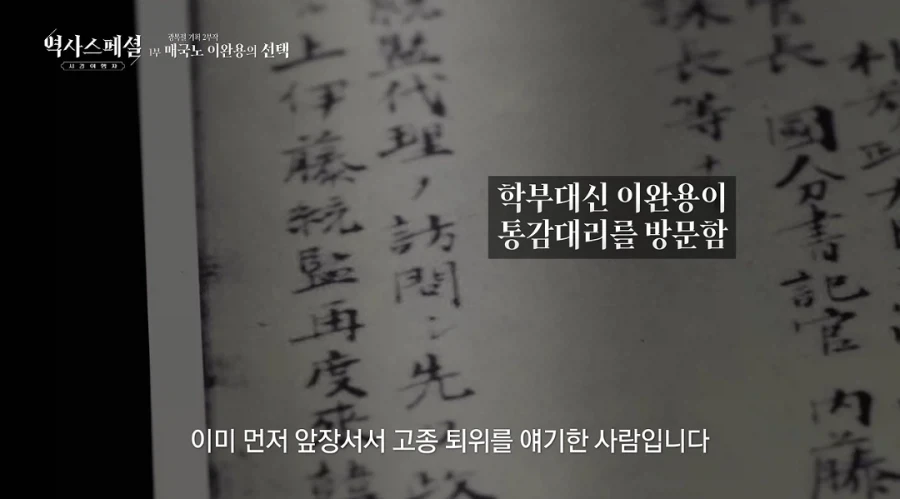 역사스페셜
시간여행자
광복절 기획 2부작
1부 매국노 이완용의 선택
학부대신 이완용이
통감대리를 방문함
採長等
國分書記官 內藤
統監代理ノ訪問ニ先
上伊藤統監再度來韓
이미 먼저 앞장서서 고종 퇴위를 얘기한 사람입니다